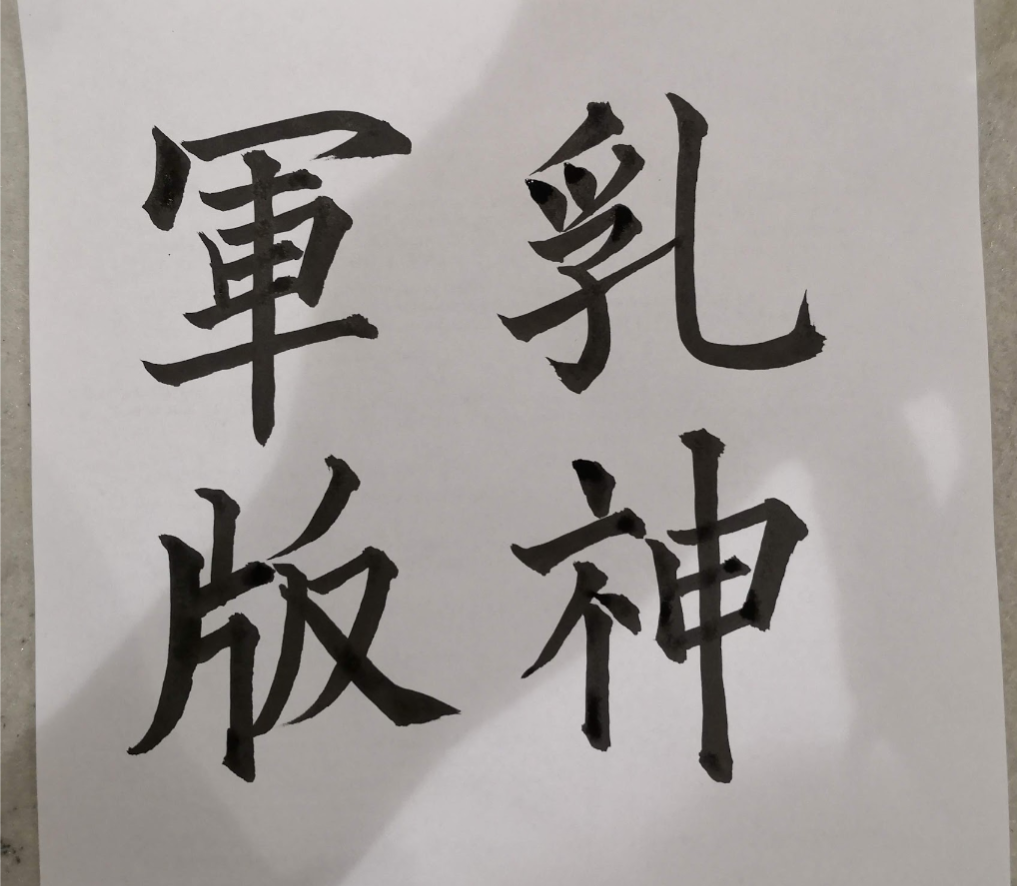 乳神
軍版